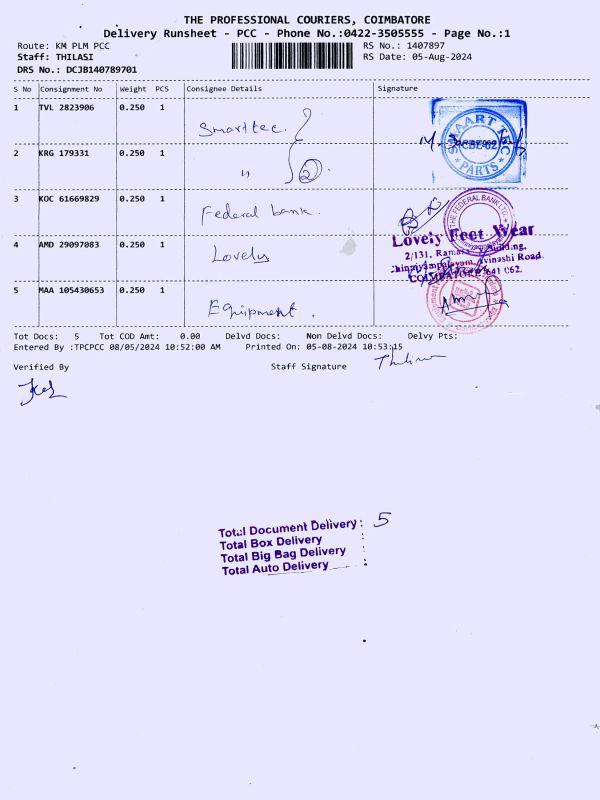 THE PROFESSIONAL COURIERS, COIMBATORE
Delivery Runsheet - PCC - Phone No.:0422-3505555 - Page No.:1
Route: KM PLM PCC RS No.: 1407897
Staff: THILASI RS Date: 05-Aug-2024
DRS No.: DCJB140789701
S No Consignment No Weight PCS Consignee Details Signature
1 TVL 2823906 0.250 1 Smarttec.
SMAART TEC
CBE-62
PARTS
2 KRG 179331 0.250 1 " 2
3 KOC 61669829 0.250 1 Federal bank.
THE FEDERAL BANK LTD.
Lovely Feet Wear
4 AMD 29097083 0.250 1 Lovely
2/131, Building,
Chinniyampalayam, Avinashi Road.
COIMBATORE - 641 062.
5 MAA 105430653 0.250 1 Equipment.
Tot Docs: 5 Tot COD Amt: 0.00 Delvd Docs: Non Delvd Docs: Delvy Pts:
Entered By :TPCPCC 08/05/2024 10:52:00 AM Printed On: 05-08-2024 10:53:15
Verified By Staff Signature
Total Document Delivery : 5
Total Box Delivery :
Total Big Bag Delivery :
Total Auto Delivery :